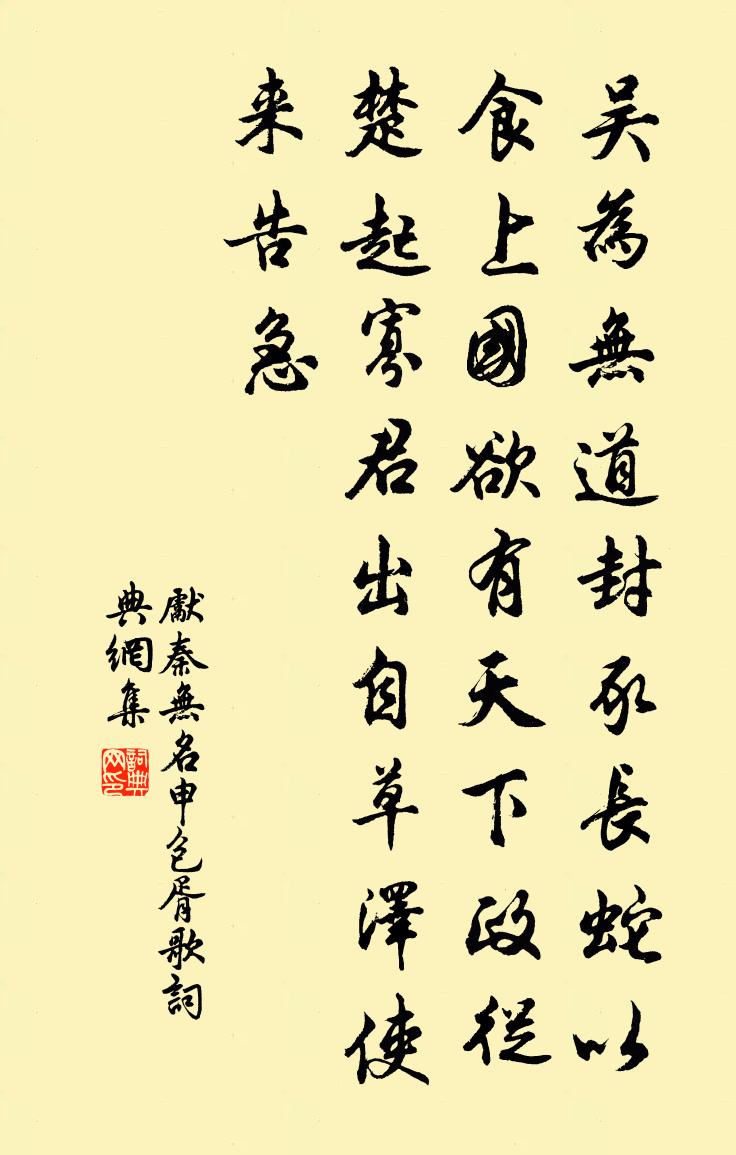 吴為無道封豕長蛇以
食上國欲有天下政從
楚起寡君出自草澤使
来告急
獻秦無名申包胥歌詞
典網集
詞典
网印